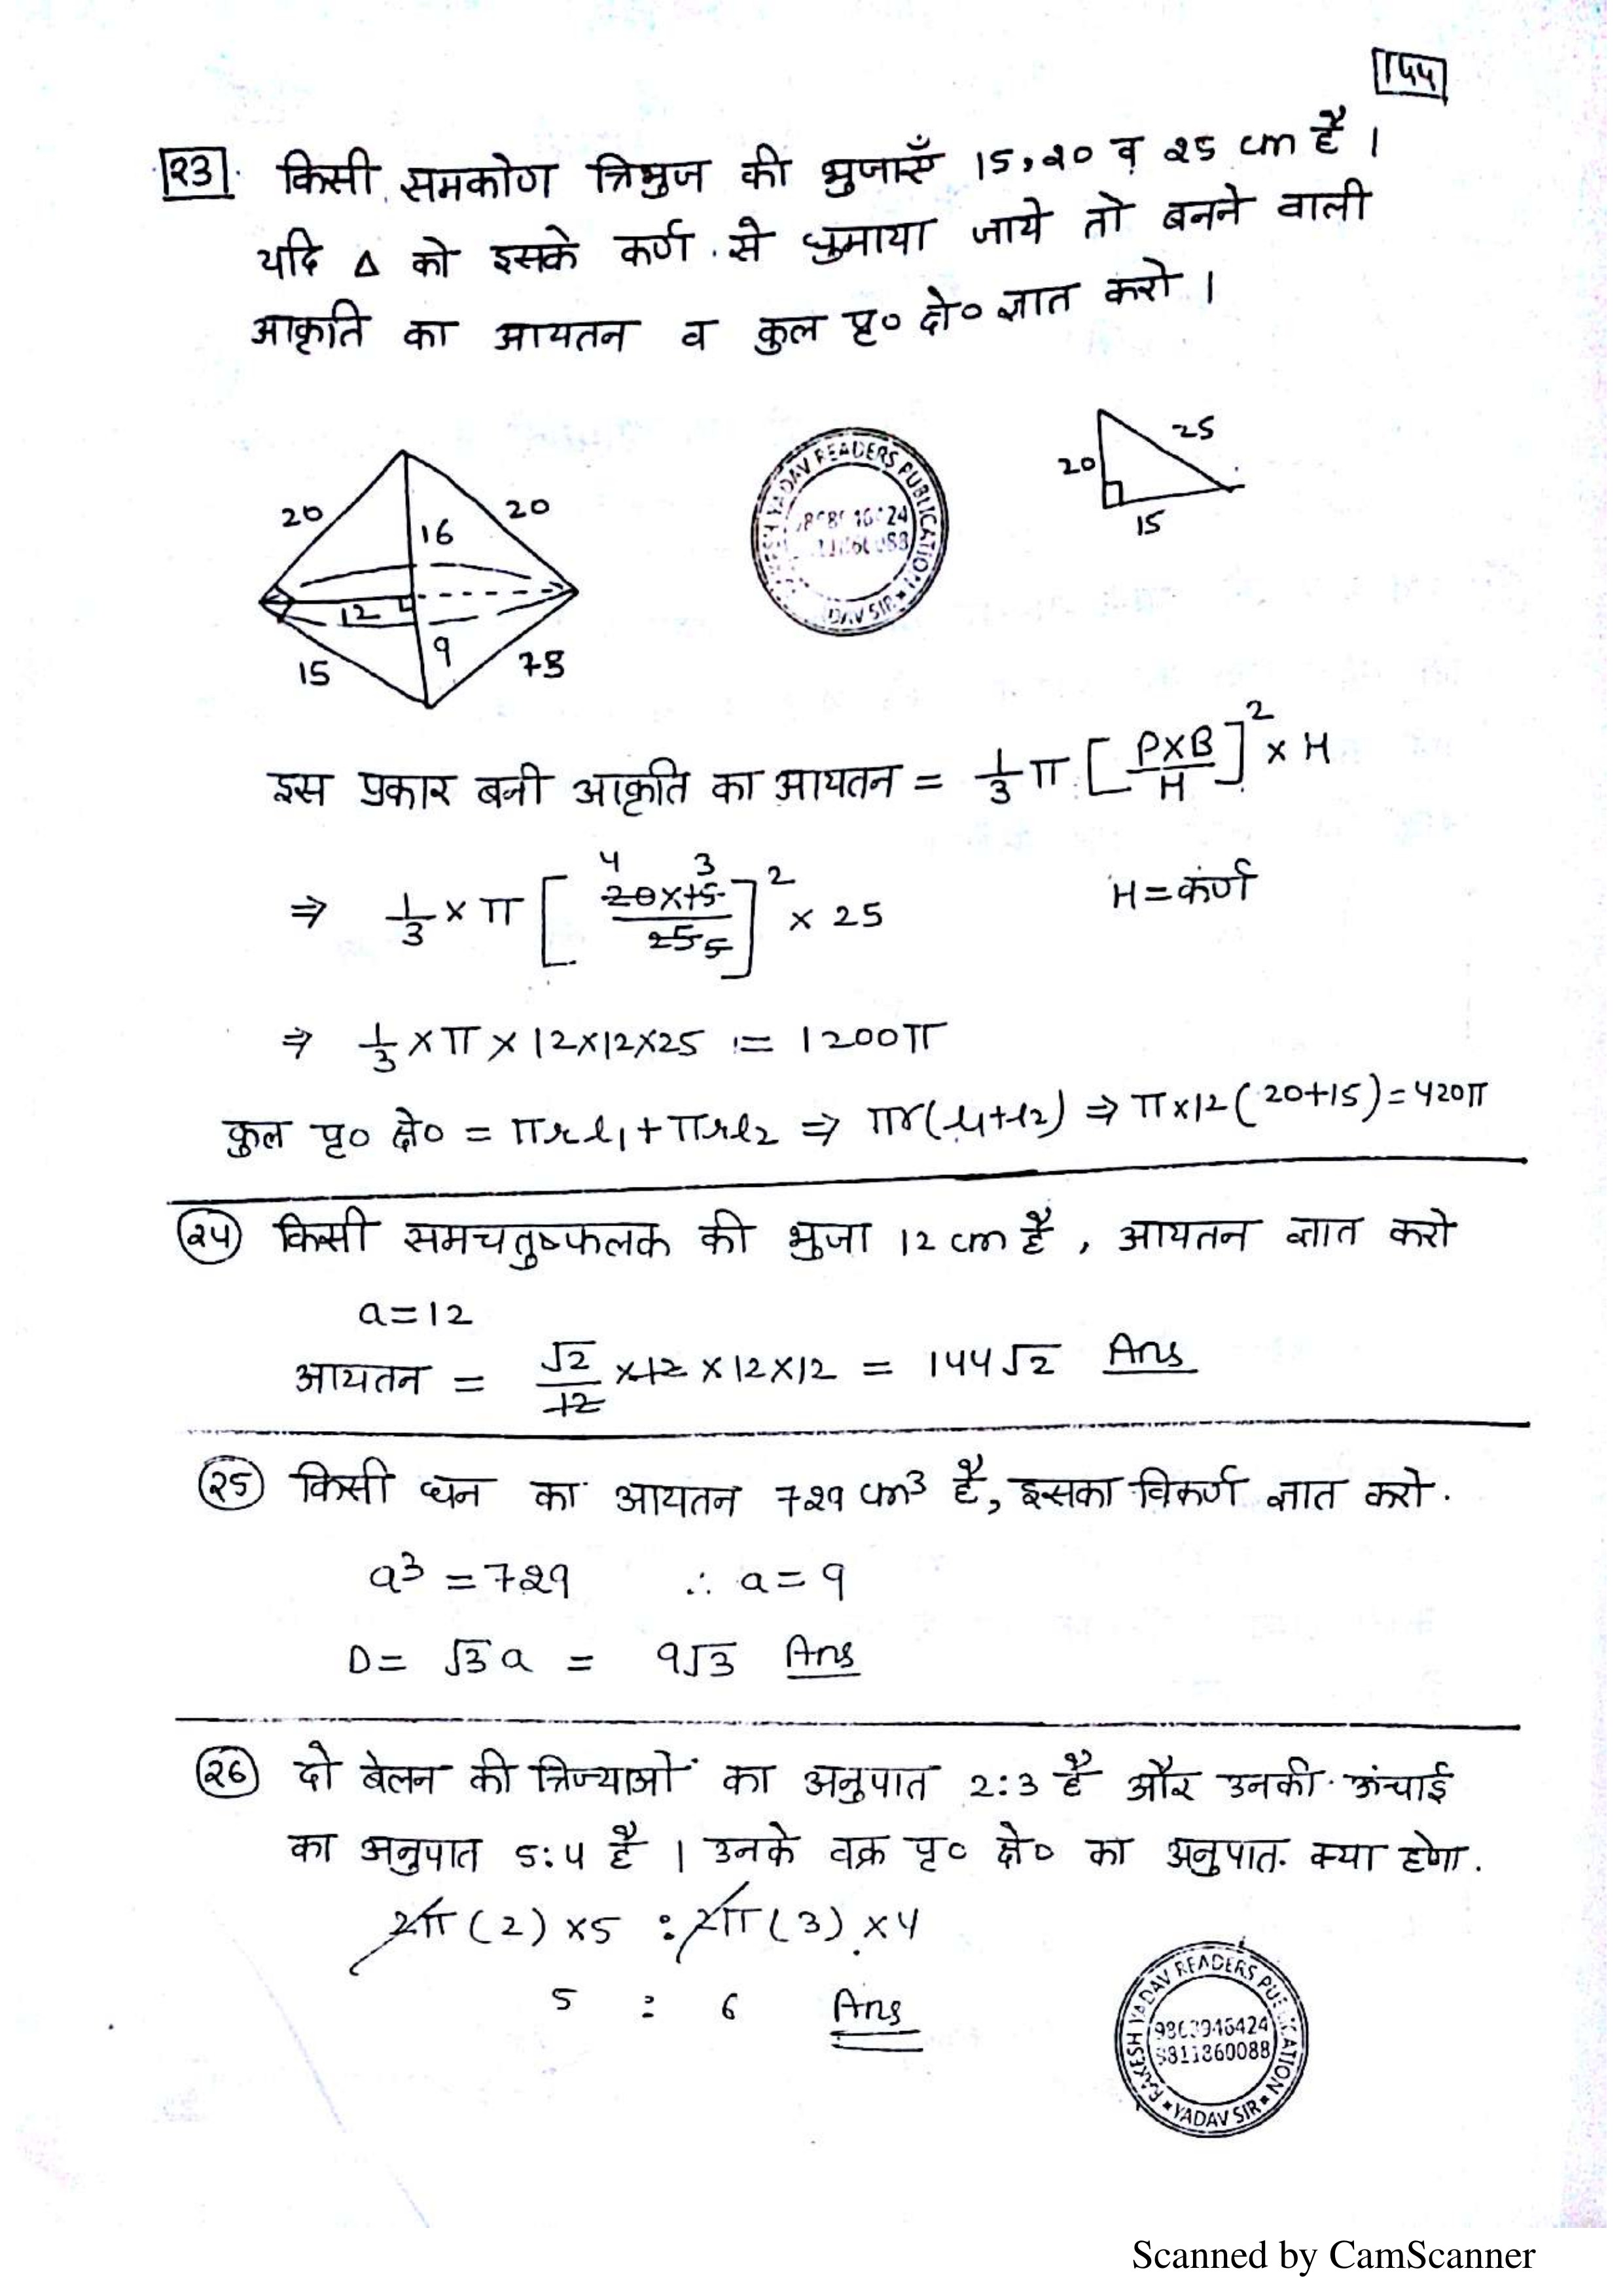 144
23. किसी समकोण त्रिभुज की भुजाएँ 15, 20 व 25 cm है ।
यदि Δ को इसके कर्ण से घुमाया जाये तो बनने वाली
आकृति का आयतन व कुल पृ० क्षे० ज्ञात करो ।
20 16 20
12
15 9
20 25
15
READERS PUBLICATION
इस प्रकार बनी आकृति का आयतन = 1/3 π [P×B/H]² × H
⇒ 1/3 × π [20×15/25]² × 25
4 3
5
H = कर्ण
⇒ 1/3 × π × 12×12×25 = 1200π
कुल पृ० क्षे० = πrl₁ + πrl₂ ⇒ πr(l₁+l₂) ⇒ π×12(20+15) = 420π
24 किसी समचतुष्फलक की भुजा 12 cm है , आयतन ज्ञात करो
a=12
आयतन = √2/12 ×12 ×12×12 = 144√2 Ans
25 किसी घन का आयतन 729 cm³ है, इसका विकर्ण ज्ञात करो.
a³ = 729 ∴ a = 9
D = √3a = 9√3 Ans
26 दो बेलन की त्रिज्याओं का अनुपात 2:3 है और उनकी ऊंचाई
का अनुपात 5:4 है । उनके वक्र पृ० क्षे० का अनुपात क्या होगा.
2π(2)×5 : 2π(3)×4
5 : 6 Ans
RAKESH YADAV READERS PUBLICATION
YADAV SIR
Scanned by CamScanner